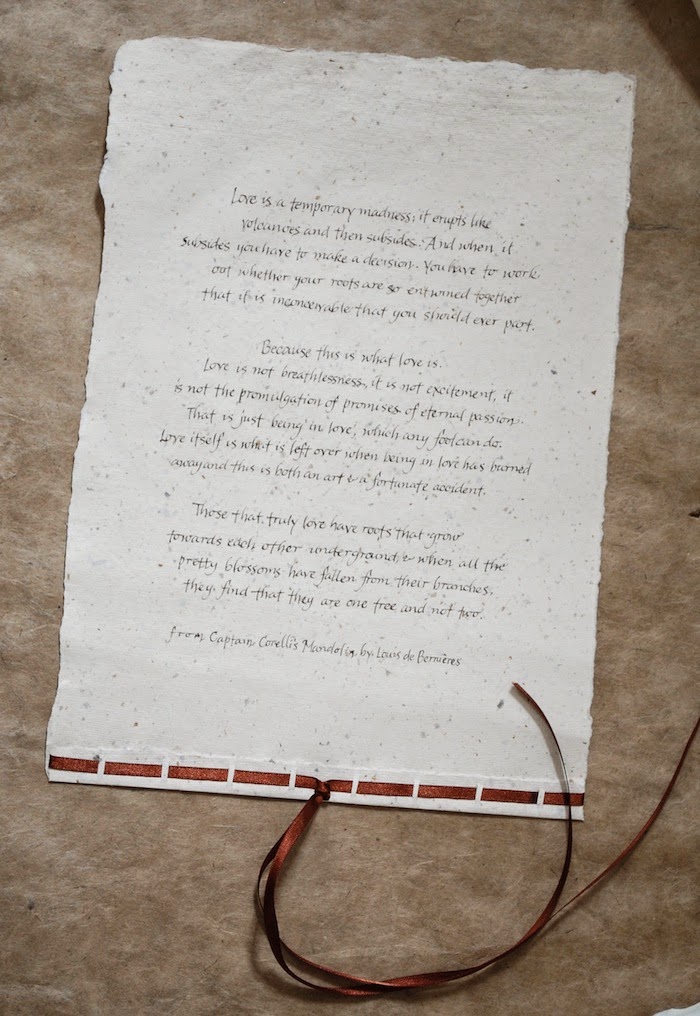 Love is a temporary madness; it erupts like
volcanoes and then subsides. And when it
subsides you have to make a decision. You have to work
out whether your roots are so entwined together
that it is inconceivable that you should ever part.
Because this is what love is.
Love is not breathlessness, it is not excitement, it
is not the promulgation of promises of eternal passion.
That is just being 'in love', which any fool can do.
Love itself is what is left over when being in love has burned
away and this is both an art & a fortunate accident.
Those that truly love have roots that grow
towards each other underground, & when all the
pretty blossoms have fallen from their branches,
they find that they are one tree and not two.
from Captain Corelli's Mandolin by Louis de Bernières